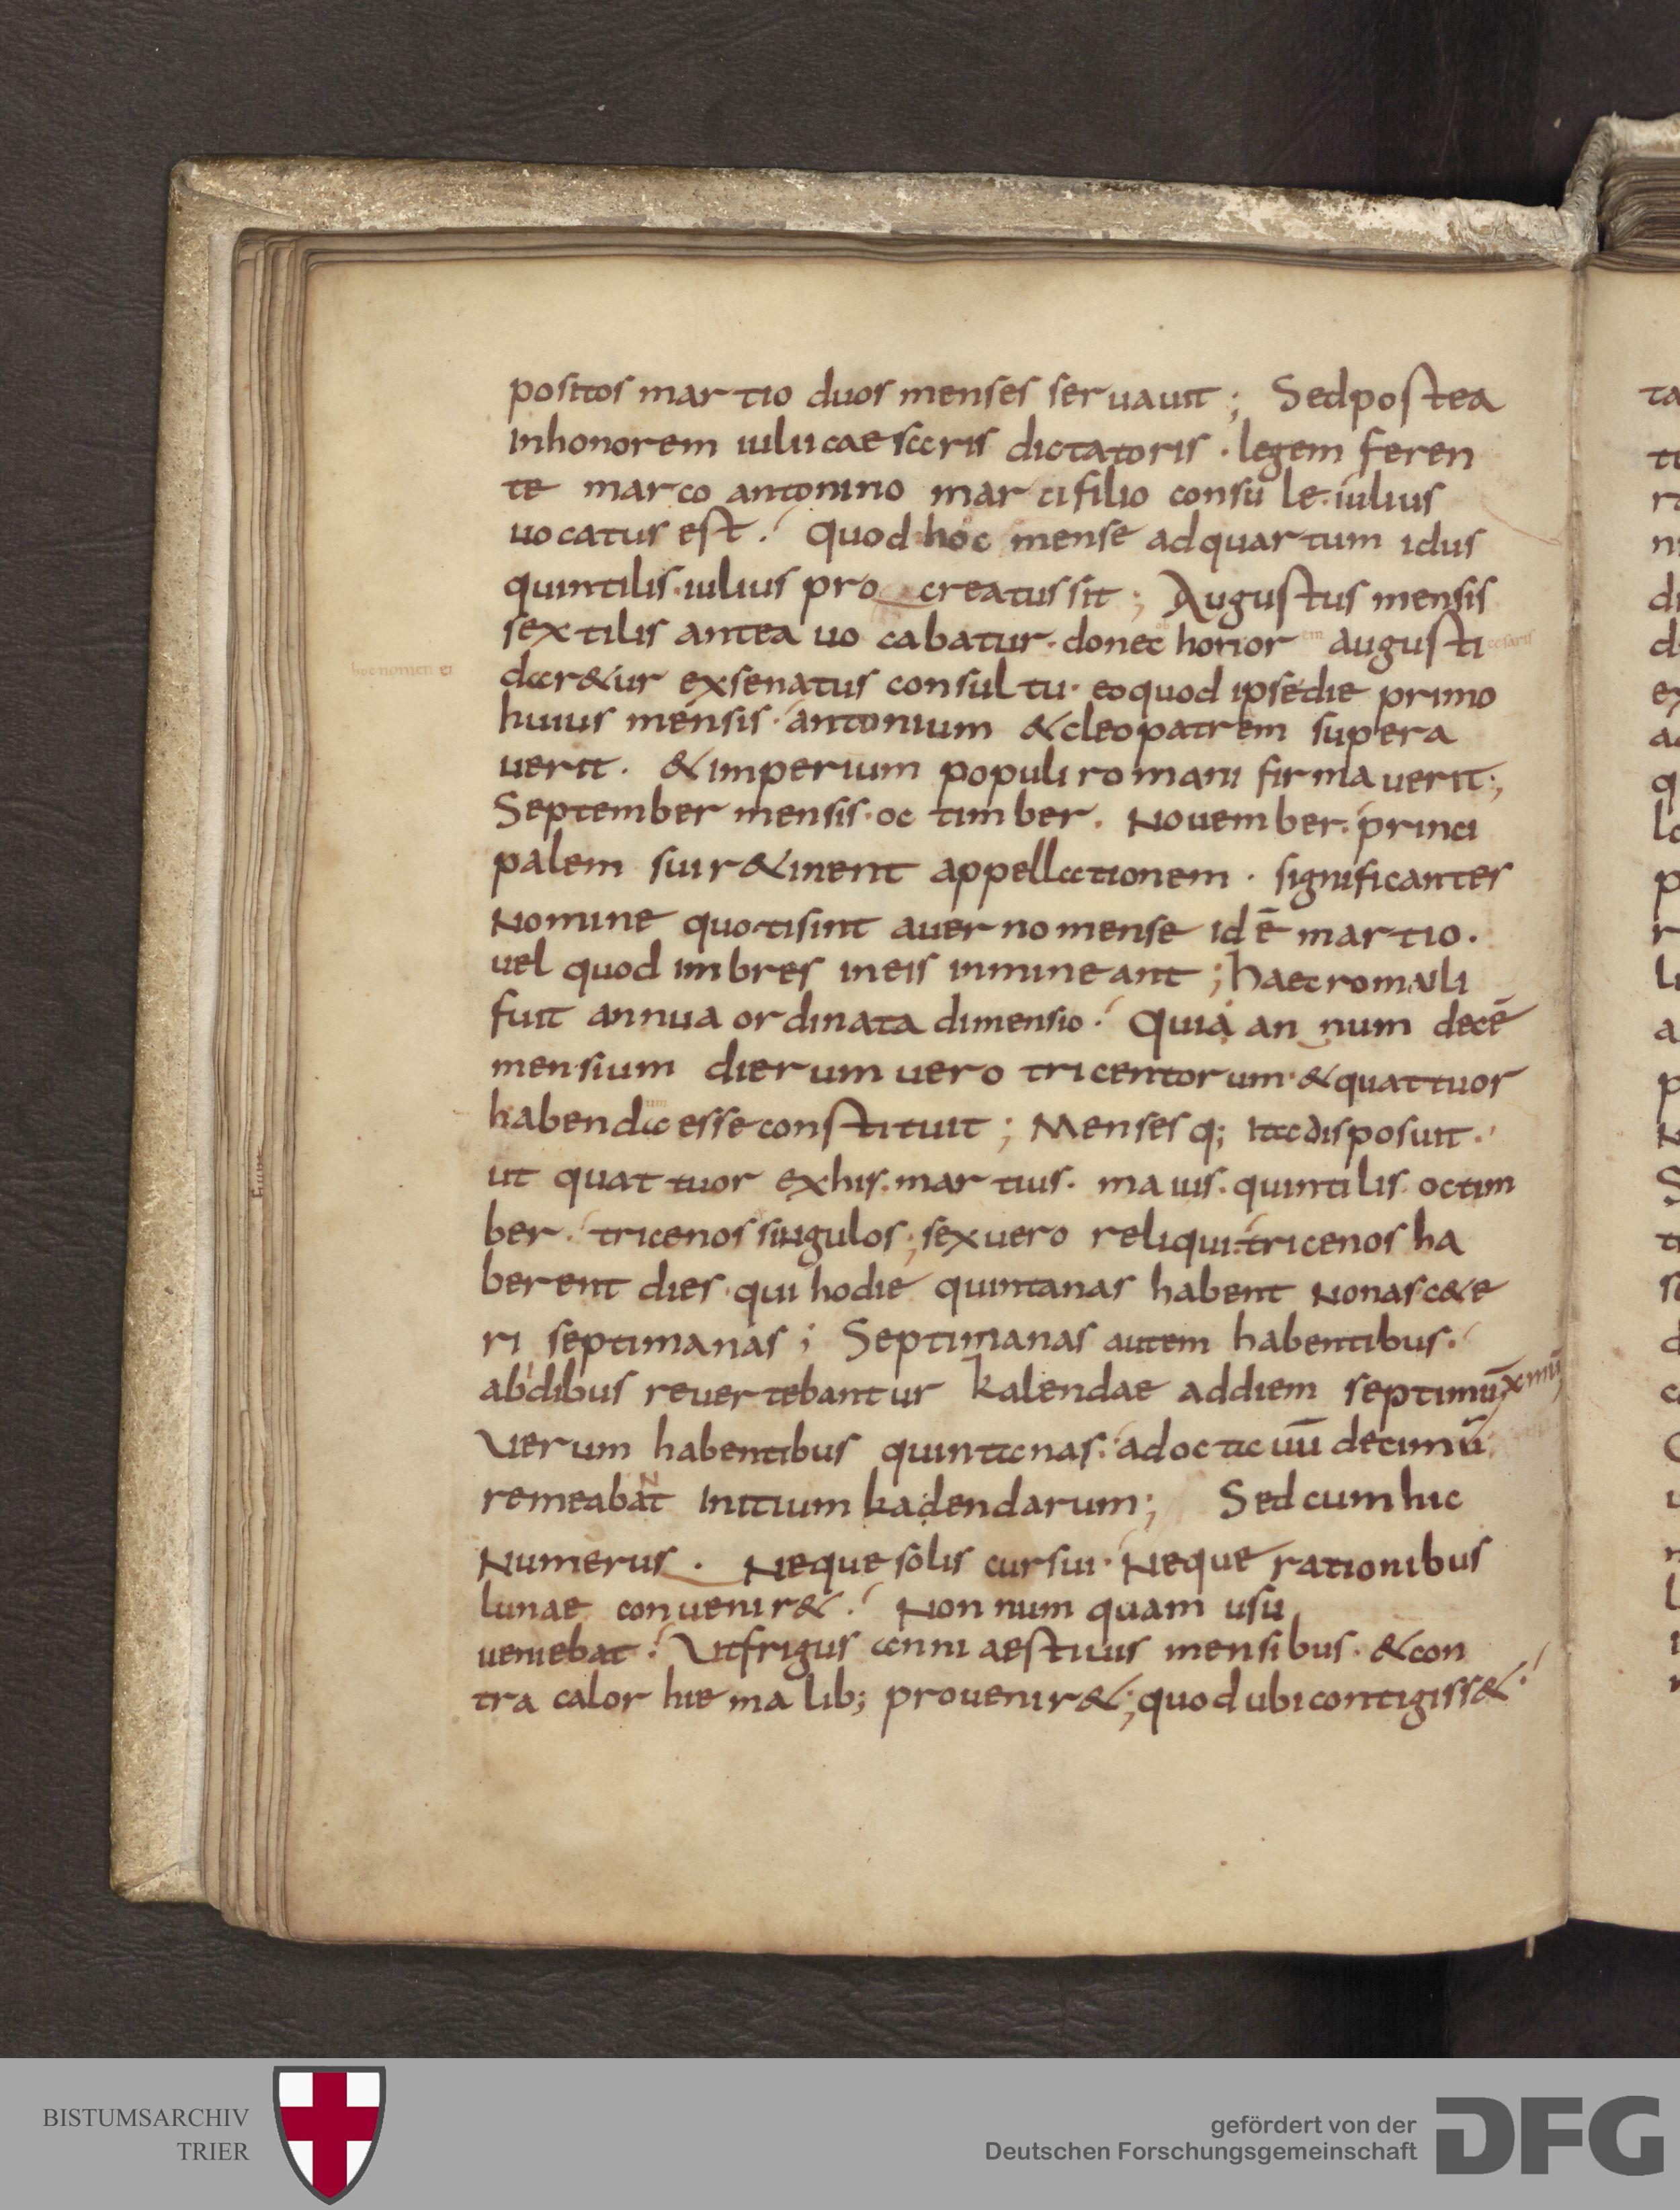 positos martio duos menses seruauit; Sedpostea
inhonorem iulii caesaris dictatoris · legem feren
te marco antonino marcifilio consule · iulius
uocatus est. Quod hoc mense adquartum idus
quintilis · iulius pro creatus sit; Augustus mensis
sextilis antea uocabatur · donec honor em augusti cesaris
hoc nomen ei
daretur exsenatus consultu · eoquod ipse die primo
huius mensis · antonium &cleopatrem supera
uerit · &imperium populi romani firmauerit;
September mensis · octimber · Nouember · princi
palem sui r&inent appellationem · significanter
Nomine quotisint auerno mense idē martio ·
uel quod imbres ineis inmineant; haec romuli
fuit annua ordinata dimensio. Quia annum decē
mensium dierum uero tricentorum · &quattuor
habenda um esse constituit; Menses q; ita disposuit.
ut quattuor exhis · martius · maius · quintilis · octim
ber · tricenos singulos; sexuero reliqui · tricenos ha
berent dies · qui hodie quintanas habent Nonas · c&e
ri septimanas; Septimanas autem habentibus.
abidibus reuertebantur kalendae addiem septimū xmū
Uerum habentibus quintanas · adoctauū decimū
remeabaNt initium kadendarum; Sedcum hic
Numerus · Neque solis cursui · Neque rationibus
lunae conuenir&. Non num quam usu
ueniebat. Utfrigus anni aestiuis mensibus · &con
tra calor hiemalib; prouenir&; quod ubi contigiss&
BISTUMSARCHIV
TRIER
gefördert von der
Deutschen Forschungsgemeinschaft
DFG